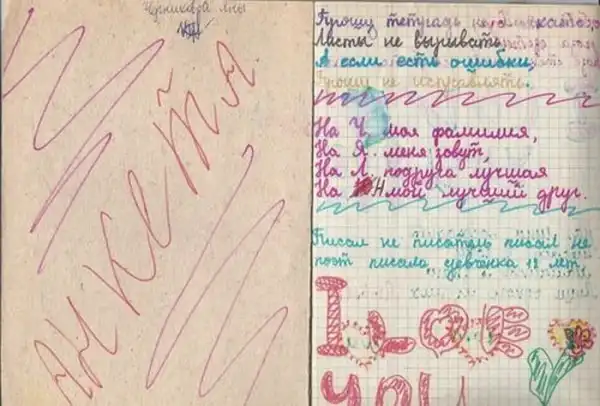 Черникова Яны
Анкета
Прошу тетрадь не
Ласты не вырывать,
А если есть ошибки,
Прошу не исправлять.
На Ч. моя фамилия,
На Я. меня зовут,
На Л. подруга лучшая
На Н мой лучший друг.
Писал не писатель писал не
поэт писала девчёнка 12 лет
I LOVE
YOU